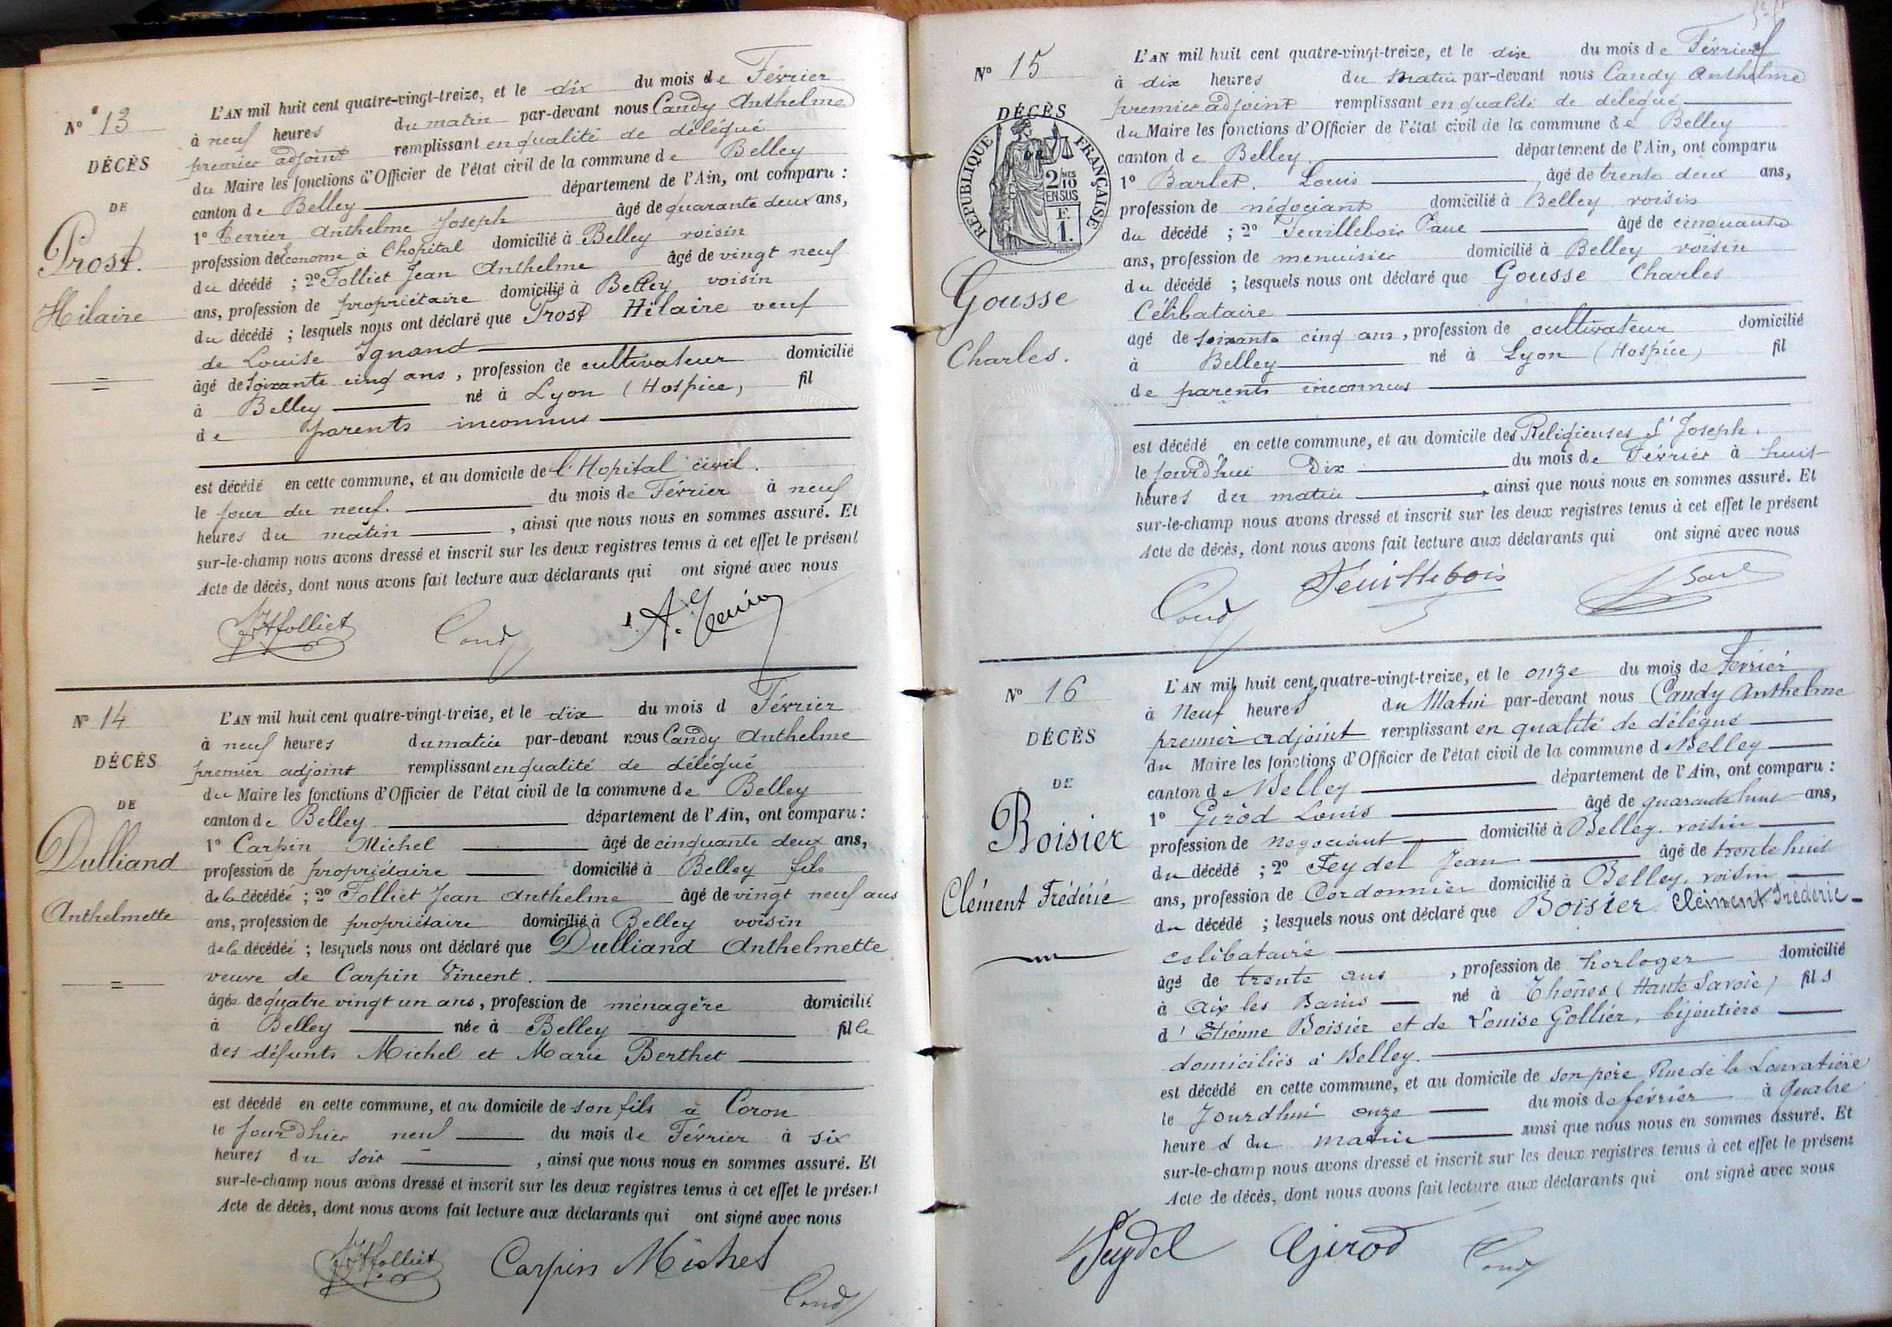 N° 13
DÉCÈS
DE
Prost.
Hilaire
L'AN mil huit cent quatre-vingt-treize, et le dix du mois de Février
à neuf heures du matin par-devant nous Candy Anthelme
premier adjoint remplissant en qualité de délégué
du Maire les fonctions d'Officier de l'état civil de la commune de Belley
canton de Belley département de l'Ain, ont comparu :
1° Terrier Anthelme Joseph âgé de quarante deux ans,
profession de Econome à l'hopital domicilié à Belley voisin
du décédé ; 2° Folliet Jean Anthelme âgé de vingt neuf
ans, profession de propriétaire domicilié à Belley voisin
du décédé ; lesquels nous ont déclaré que Prost Hilaire veuf
de Louise Ignand
âgé de soixante cinq ans, profession de cultivateur domicilié
à Belley né à Lyon (Hospice) fil
de parents inconnus
est décédé en cette commune, et au domicile de l'Hopital civil.
le jour du neuf. du mois de Février à neuf
heures du matin, ainsi que nous nous en sommes assuré. Et
sur-le-champ nous avons dressé et inscrit sur les deux registres tenus à cet effet le présent
Acte de décès, dont nous avons fait lecture aux déclarants qui ont signé avec nous
JAfolliet Candy
N° 14
DÉCÈS
DE
Dulliand
Anthelmette
L'AN mil huit cent quatre-vingt-treize, et le dix du mois d Février
à neuf heures du matin par-devant nous Candy Anthelme
premier adjoint remplissant en qualité de délégué
du Maire les fonctions d'Officier de l'état civil de la commune de Belley
canton de Belley département de l'Ain, ont comparu :
1° Carpin Michel âgé de cinquante deux ans,
profession de propriétaire domicilié à Belley fils
de la décédée ; 2° Folliet Jean Anthelme âgé de vingt neuf ans
ans, profession de propriétaire domicilié à Belley voisin
de la décédée ; lesquels nous ont déclaré que Dulliand Anthelmette
veuve de Carpin Vincent.
âgée de quatre vingt un ans, profession de ménagère domicilié
à Belley née à Belley fille
des défunts Michel et Marie Berthet
est décédé en cette commune, et au domicile de son fils à Coron
le jourd'hier neuf du mois de Février à six
heures du soir, ainsi que nous nous en sommes assuré. Et
sur-le-champ nous avons dressé et inscrit sur les deux registres tenus à cet effet le présent
Acte de décès, dont nous avons fait lecture aux déclarants qui ont signé avec nous
JAfolliet Carpin Michel Candy
N° 15
DÉCÈS
RÉPUBLIQUE FRANÇAISE
2/10 EN SUS
F.
1.
Gousse
Charles.
L'AN mil huit cent quatre-vingt-treize, et le dix du mois de Février
à dix heures du matin par-devant nous Candy Anthelme
premier adjoint remplissant en qualité de délégué
du Maire les fonctions d'Officier de l'état civil de la commune de Belley
canton de Belley département de l'Ain, ont comparu
1° Barlet. Louis âgé de trente deux ans,
profession de négociant domicilié à Belley voisin
du décédé ; 2° Feuillebois Paul âgé de cinquante
ans, profession de menuisier domicilié à Belley voisin
du décédé ; lesquels nous ont déclaré que Gousse Charles
Célibataire
âgé de soixante cinq ans, profession de cultivateur domicilié
à Belley né à Lyon (Hospice) fil
de parents inconnus
est décédé en cette commune, et au domicile des Religieuses St Joseph.
le jourd'hui Dix du mois de Février à huit
heures du matin, ainsi que nous nous en sommes assuré. Et
sur-le-champ nous avons dressé et inscrit sur les deux registres tenus à cet effet le présent
Acte de décès, dont nous avons fait lecture aux déclarants qui ont signé avec nous
Candy Feuillebois
N° 16
DÉCÈS
DE
Boisier
Clément Frédéric
L'AN mil huit cent quatre-vingt-treize, et le onze du mois de Fevrier
à Neuf heures du Matin par-devant nous Candy Anthelme
premier adjoint remplissant en qualité de délégué
du Maire les fonctions d'Officier de l'état civil de la commune de Belley
canton de Belley département de l'Ain, ont comparu :
1° Girod Louis âgé de quarante huit ans,
profession de negociant domicilié à Belley. voisin
du décédé ; 2° Feydel Jean âgé de trente huit
ans, profession de Cordonnier domicilié à Belley. voisin
du décédé ; lesquels nous ont déclaré que Boisier Clément Frédéric
celibataire
âgé de trente ans, profession de horloger domicilié
à Aix les Bains né à Thones (Haute Savoie) fils
d'Etienne Boisier et de Louise Gollier, bijoutiers
domiciliés à Belley.
est décédé en cette commune, et au domicile de son père Rue de la Louvatière
le Jourdhui onze du mois de février à Quatre
heures du matin ainsi que nous nous en sommes assuré. Et
sur-le-champ nous avons dressé et inscrit sur les deux registres tenus à cet effet le présent
Acte de décès, dont nous avons fait lecture aux déclarants qui ont signé avec nous
Feydel Girod Candy